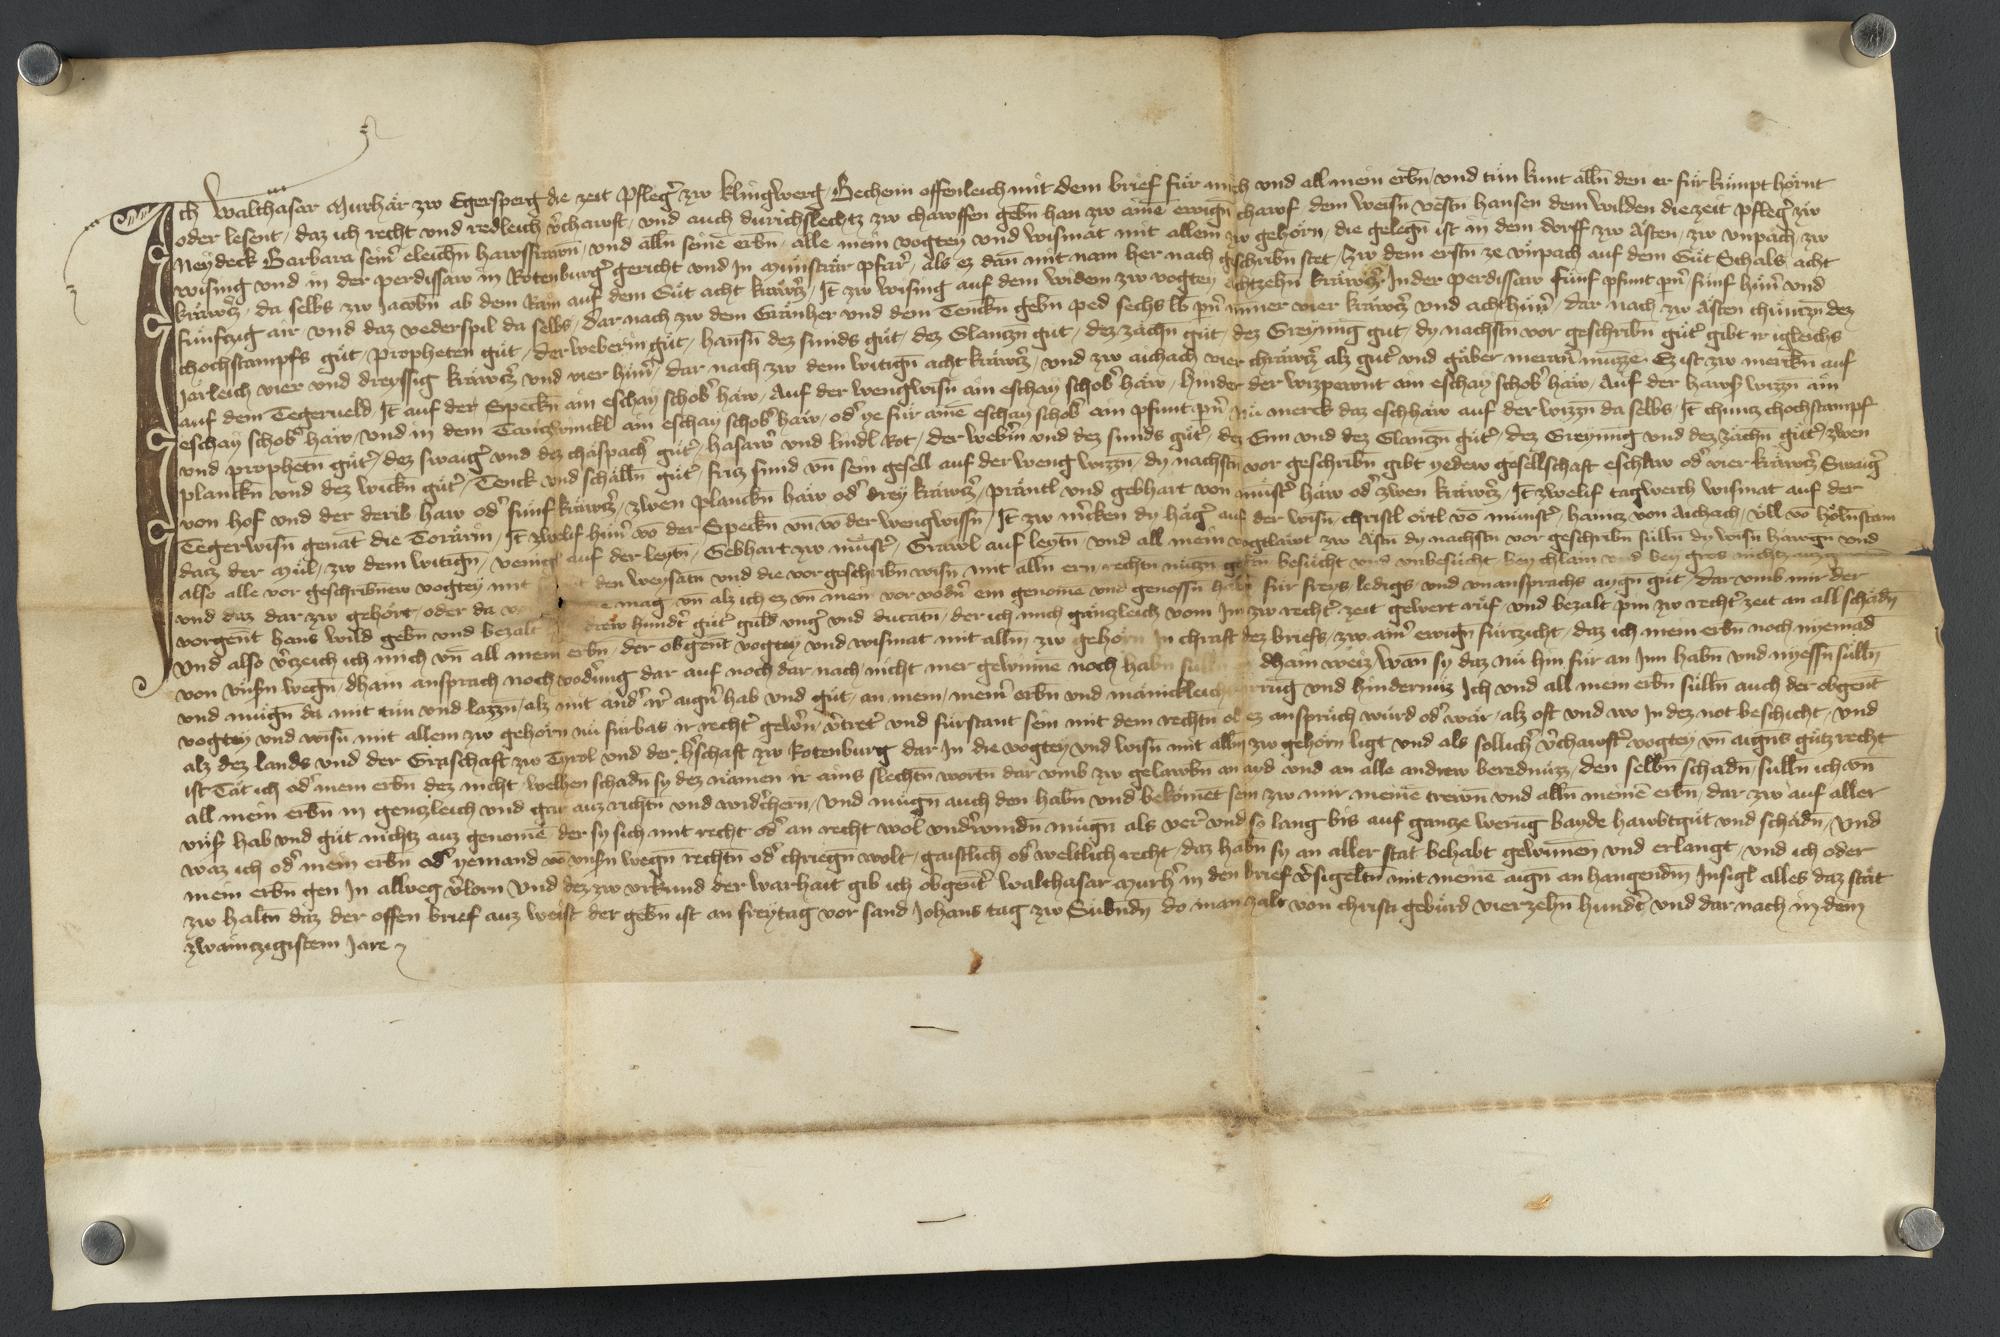 Ich Walthasar Murhär zw Egersperg die zeit Pfleg̉ zw klingwerg Bechenn offenleich mit dem brief für mich vnd all mein erbn̄ vnd tün kunt alln̄ den er für kümpt hörnt
oder lesent daz ich recht vnd redleich v̉chawft vnd auch durichslechtz zw chawffen gebn̄ han zw aine ewign̄ chawf dem weisn̄ vestn̄ hansen dem wilden die zeit pfleg̉ zw
Neydeck Barbara seinr̉ eleichn̄ hawsfrawn̄ vnd alln̄ seine erbn̄ alle mein vogtey vnd wismät mit allem zw gehörn die gelegn̄ ist in dem dorff zw Asten zw vnpäch zw
wising vnd in der perdissaw in Rotenburg̉ gericht vnd In münstrar pfarr̉ als ez dan mit nam her nach geschribn̄ stet Zw dem erstn̄ ze vnpach auf dem Güt Schals acht
kräwcz̉ da selbs zw Jacobn̄ ab dem Rain auf dem Güt acht kräwcz̉ It̄ zw wising auf dem widem zw vogtey achtzehn kräwcz̉ In der perdissaw fünf pfunt pn̄ fünf hün̉ vnd
fünftzig air vnd daz vederspil da selbs dar nach zw dem Gränher vnd dem Tenckn̄ gebn̄ ped sechs lb pn̄ minner vier kräwcz̉ vnd acht hün̉ dar nach zw Asten chüntzn̄ dez
chochstampfs güt propheten güt der weberin güt hansn̄ dez smids güt dez Glanczn̄ gut dez zächn̄ güt dez Greyning gut dy nachstn̄ vor geschribn̄ güt̉ gibt ir igleichs
Järleich vier vnd dreyssig kräwcz̉ vnd vier hün̉ dar nach zw dem witign̄ acht kräwcz̉ vnd zw aichach vier chräwcz̉ alz gut̉ vnd gäber meran̉ münzze Ez ist zw merckn̄ auf
auf dem Tegerueld It̄ auf der Speckn̄ ain eschay schob̉ häw Auf der wengwisn̄ ain eschay schob̉ häw hinder der wizperwnt ain eschay schob̉ häw Auf der haws wizzn̄ ain
eschay schob̉ häw vnd in dem Tanczwinckl ain eschay schob̉ häw od̉ ye für aine eschay schob̉ ain pfunt pn̄ Nü merck daz eschhäw auf der wizzn̄ da selbs It̄ chuncz chochstampf
vnd prophetn̄ güt̉ dez swaig̉ vnd dez chäspach̉ güt̉ hasaw̉ vnd lindl Rot der webr̉in vnd dez smids güt̉ dez Enn vnd dez Glanczn̄ güt̉ dez Greyning vnd dez zächn̄ güt̉ zwen
planckn̄ vnd dez wickn̄ güt̉ Tenck vnd schälln̄ güt̉ fricz smid vn̄ sein gesell auf der weng wizzn̄ dy nachstn̄ vor geschribn̄ gibt yedew gesellschaft eschaw od̉ vier kräwcz̉ Swaig̉
von hof vnd der derib haw od̉ fünf kräwcz̉ zwen planckn̄ häw od̉ drey kräwcz̉ präntl vnd gebhart von münst̉ häw od̉ zwen kräwcz̉ It̄ zwelif tagwerch wismat auf der
Tegerwisn̄ genat die Torärin It̄ zwelif hün̉ vō der Speckn̄ vn̄ vō der wengwissn̄ It̄ zw m̉cken dy häg̉ auf der wisn̄ christl örtl vō münst̉ haincz von Aichach vll vō hölnstain
dacz der Mül zw dem witign̄ auf der leytn̄ Gebhart zw müst̉ Grawl auf leytn̄ vnd all mein vogtlawt zw Astn̄ dy nachstn̄ vor geschribn̄ sülln̄ dy wisn̄ hawgn̄ vnd
also alle vor geschribnew vogtey mit den weysatn̄ vnd die vor geschribn̄ wisn̄ mit alln̄ ern rechtn̄ nüczn̄ besücht vnd vnbesücht bey chlain vnd bey gros nichtz
vnd daz dar zw gehört oder da mag vn̄ alz ich ez vn̄ mein vor vodn̉ ein genome vnd genossn̄ habn̄ für freys ledigs vnd vnansprachs aygn güt dar vmb mir der
vorgent hans wild gebn̄ vnd bezalt drew hundt̉ güt̉ guld vng̉ vnd ducatn̄ der ich mich gänzleich vom Im zw recht̉ zeit gewert rüf vnd bezalt pin zw recht̉ zeit an all schädn̄
Vnd also v̉czeich ich mich vn̄ all mein erbn̄ der obgent vogtey vnd wismat mit alln̄ zw gehörn In chraft dez briefs zw ain̉ ewign̄ fürtzicht daz ich mein erbn̄ noch nyemād
von vnsrn̄ wegn̄ dhain ansprach noch vodr̉ung dar auf noch dar nach nicht mer gewinne noch habn̄ sülln̄ dhain weiz wan̄ sy daz nü hin für an Inn habn̄ vnd nyessn̄ sülln̄
vnd mügn̄ da mit tün vnd lazzn̄ alz mit andr̉ ir̉ aign̉ hab vnd güt an mein mein̉ erbn̄ vnd mänickleichs irrūg vnd hindernüz Ich vnd all mein erbn̄ sülln̄ auch der obgent
vogtey vnd wisn̄ mit allem zw gehörn nü fürbas ir recht̉ gewer̉n v̉tret̉ vnd fürstant sein mit dem rechtn̄ ob ez ansprüch würd od̉ wär alz oft vnd wo In dez not beschicht vnd
alz dez lands vnd der Graschaft zw Tyrol vnd der h̉schaft zw Rotenburg dar In die vogtey vnd wisn̄ mit alln̄ zw gehörn ligt vnd als sollich̉ v̉chawft̉ vogtey vn̄ aigns gütz recht
ist Tät ich od̉ mein erbn̄ dez nicht welhen schadn̄ sy dez nämen ir ains slechtn̄ wortn̄ dar vmb zw gelawbn̄ an ayd vnd an alle andrew berednüzz den selbn̄ schadn̄ sulln̄ ich vn̄
all mein erbn̄ in genczleich vnd gar auz richtn̄ vnd widr̉chern̄ vnd mügn̄ auch den habn̄ vnd bekömet sein zw mir meine trewn̄ vnd alln̄ meine erbn̄ dar zw auf aller
vnsr̉ hab vnd güt nichtz auz genome der sy sich mit recht od̉ an recht wol vndr̉windn̄ mügn̄ als ver̉ vnd so lang bis auf gantze werūg bayde hawbtgüt vnd schädn̄ vnd
waz ich od̉ mein erbn̄ od̉ yemand vō vnsrn̄ wegn̄ rechtn̄ od̉ chriegn̄ wolt gaistlich od̉ weltlich recht daz habn̄ sy an aller stat behabt gewunnen vnd erlangt vnd ich oder
mein erbn̄ gen In allweg v̉lorn Vnd dez zw vrkund der warhait gib ich obgent̉ walthasar murh̉ in den brief v̉sigeltn̄ mit meine aign an hangendm̄ Insigl alles daz stät
zw haltn̄ daz der offen brief auz weist der gebn̄ ist an freytag vor sand Johans tag zw Sübndn̄ do man zalt von christi gebürd vierzehn̄ hundt̉ vnd dar nach in dem
zwainczigistem Jare